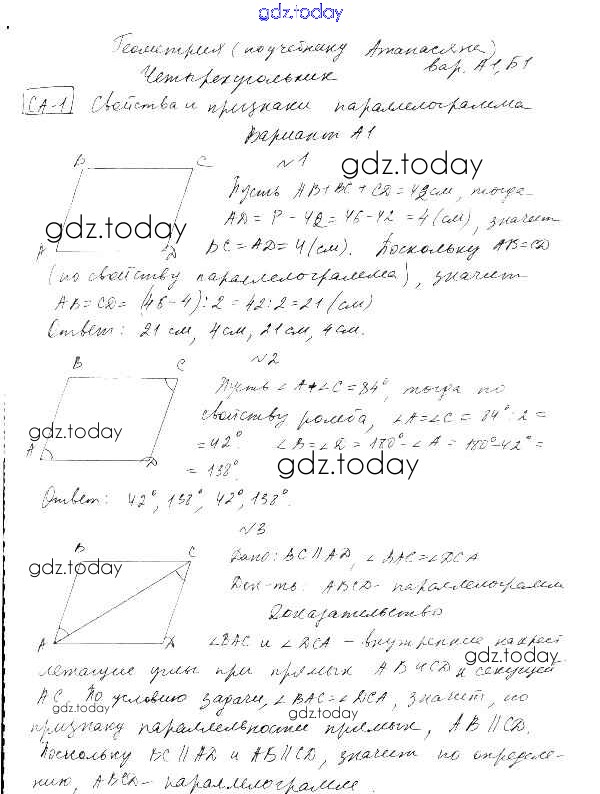 gdz.today
Геометрия (по учебнику Атанасяна)
Четырехугольник вар. А1, Б1
СА-1 Свойства и признаки параллелограмма
Вариант А1
B C №1
gdz.today
Пусть AB+BC+CD=42см, тогда
gdz.today
AD = P - 42 = 46-42 = 4(см), значит
A D BC=AD=4(см). Поскольку AB=CD
(по свойству параллелограмма), значит
AB=CD= (46-4):2=42:2=21(см)
Ответ: 21см, 4см, 21см, 4см.
№2
B C Пусть ∠A+∠C=84°, тогда по
свойству ромба, ∠A=∠C=84°:2=
gdz.today
=42°. ∠B=∠D=180°-∠A=180°-42°=
A D = 138°.
gdz.today
Ответ: 42°, 138°, 42°, 138°.
№3
B C Дано: BC||AD, ∠BAC=∠DCA
gdz.today
Док-ть: ABCD- параллелограмм
Доказательство
A D ∠BAC и ∠DCA - внутренние накрест
gdz.today
лежащие углы при прямых AB и CD и секущей
AC. По условию задачи, ∠BAC=∠DCA, значит, по
gdz.today gdz.today
признаку параллельности прямых, AB||CD.
Поскольку BC||AD и AB||CD, значит по определе-
нию, ABCD- параллелограмм.